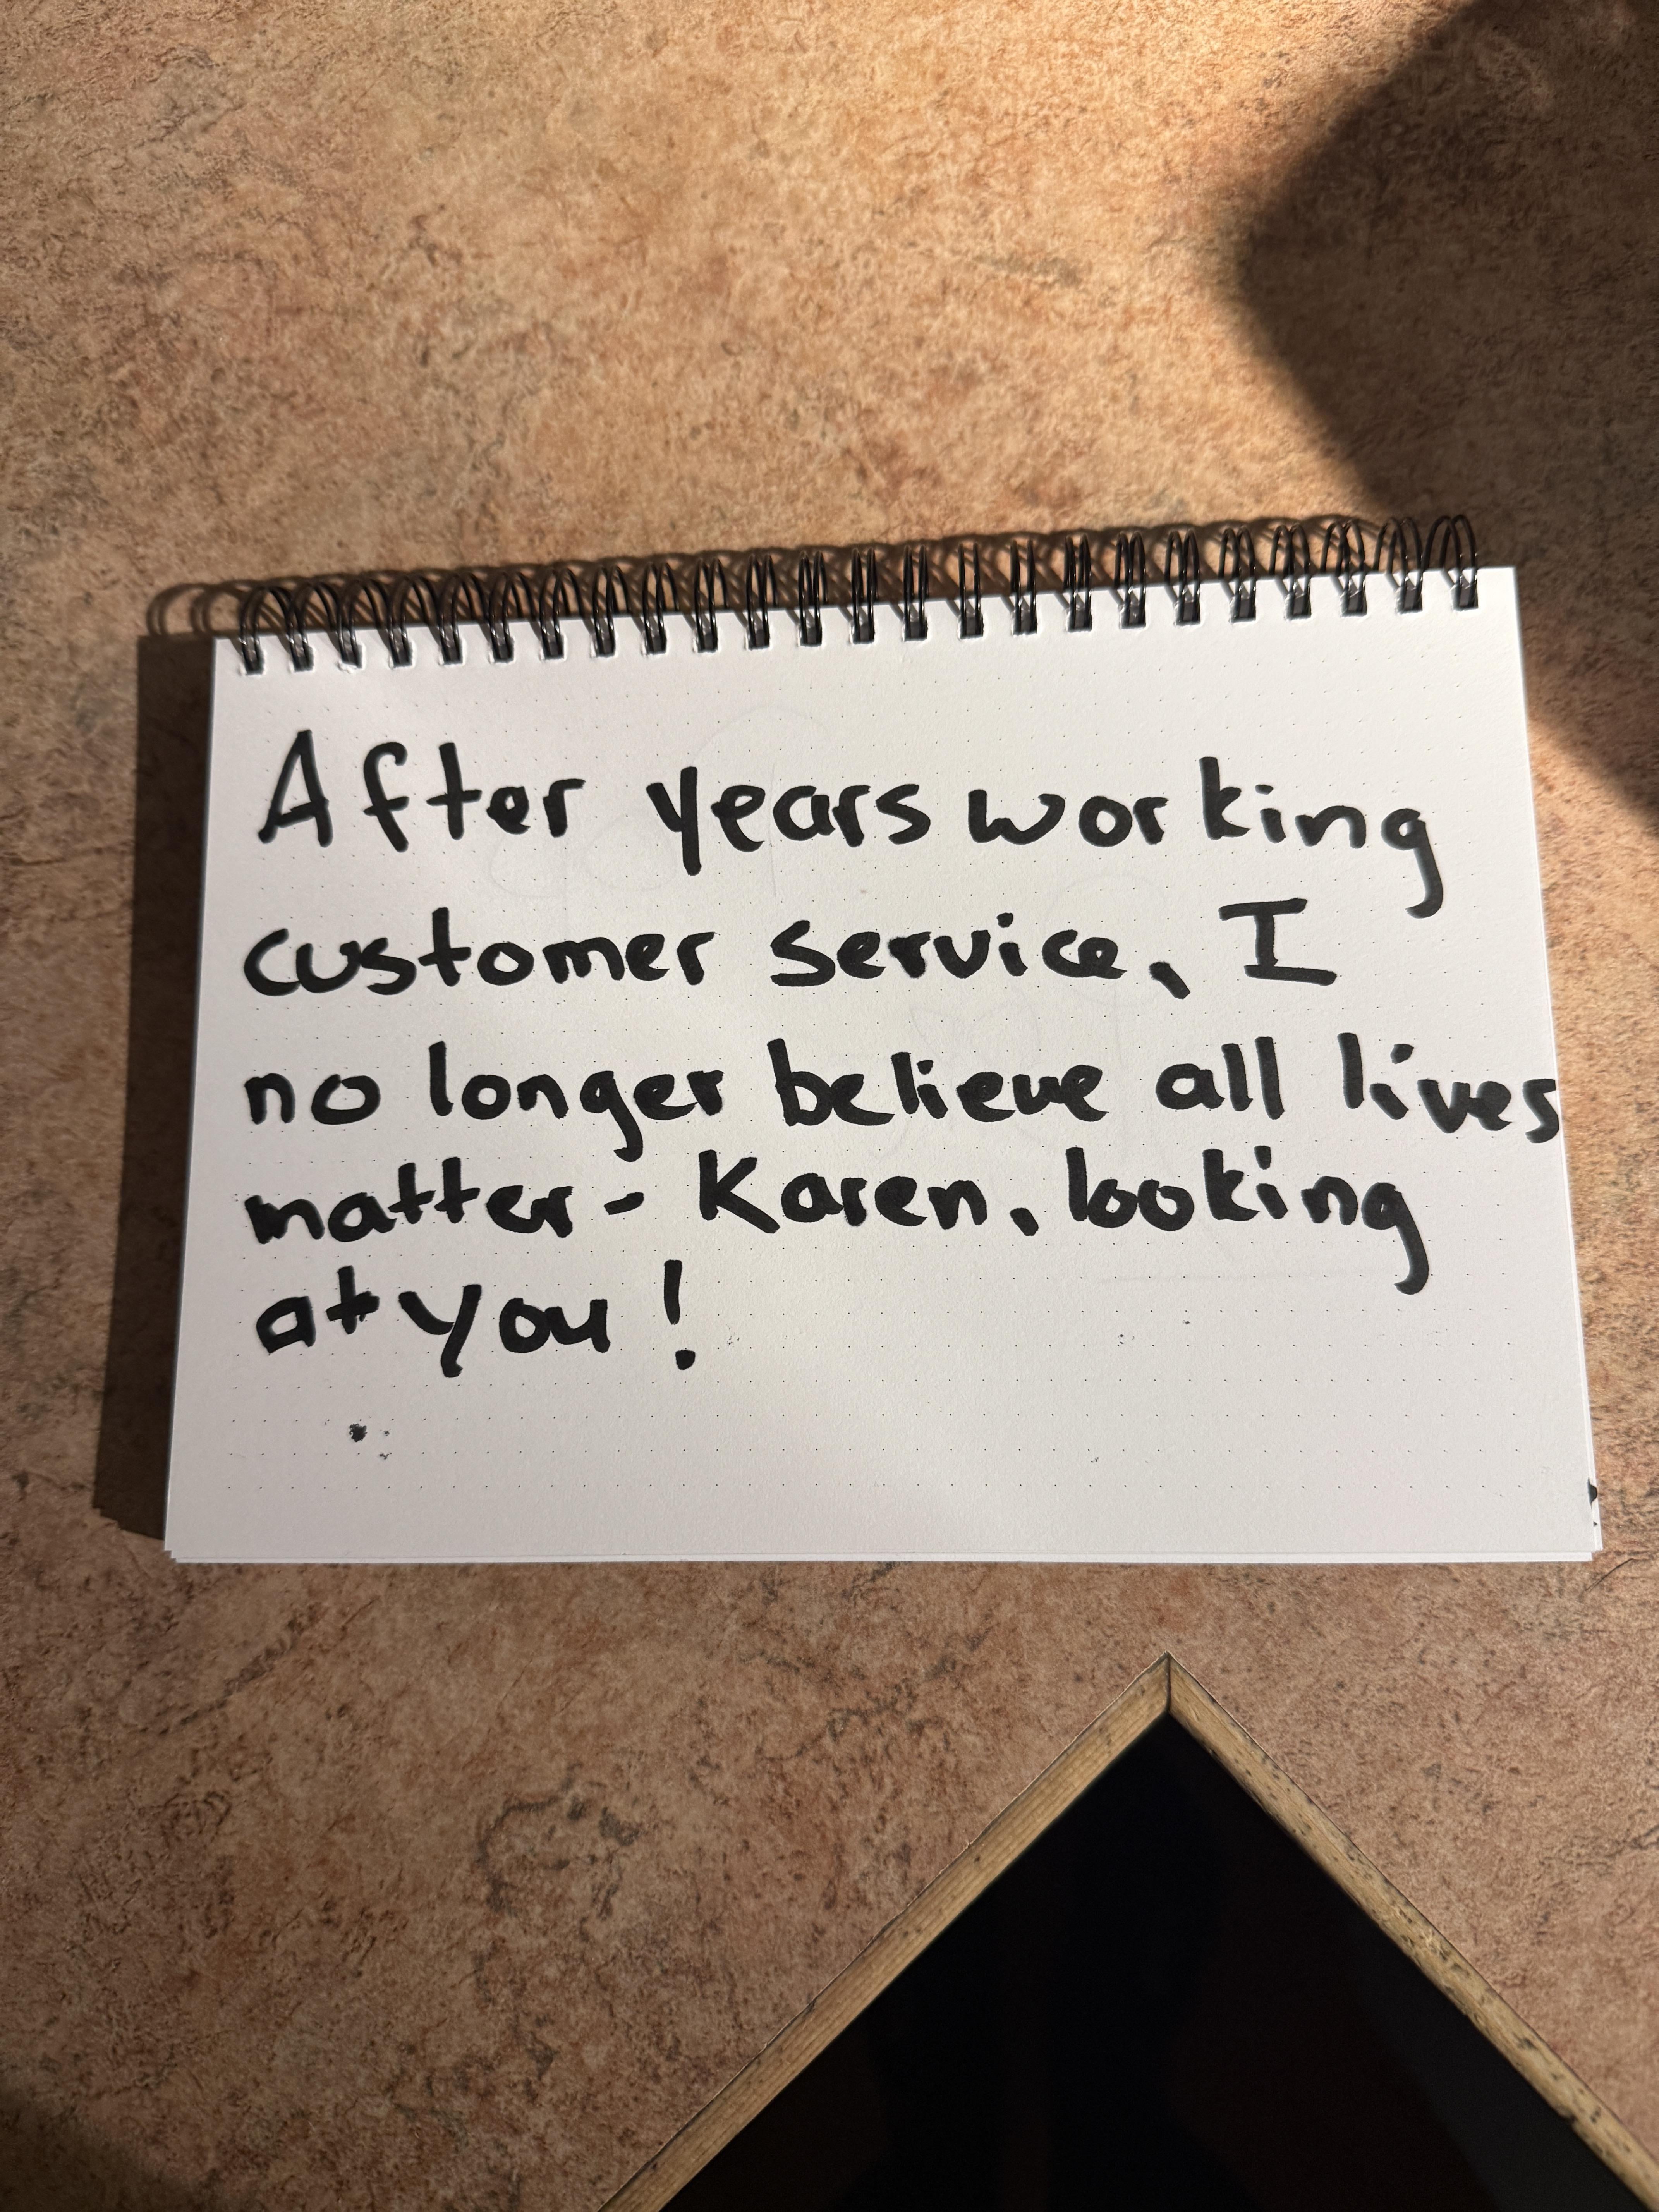 After years working
customer service, I
no longer believe all lives
matter - Karen, looking
at you!